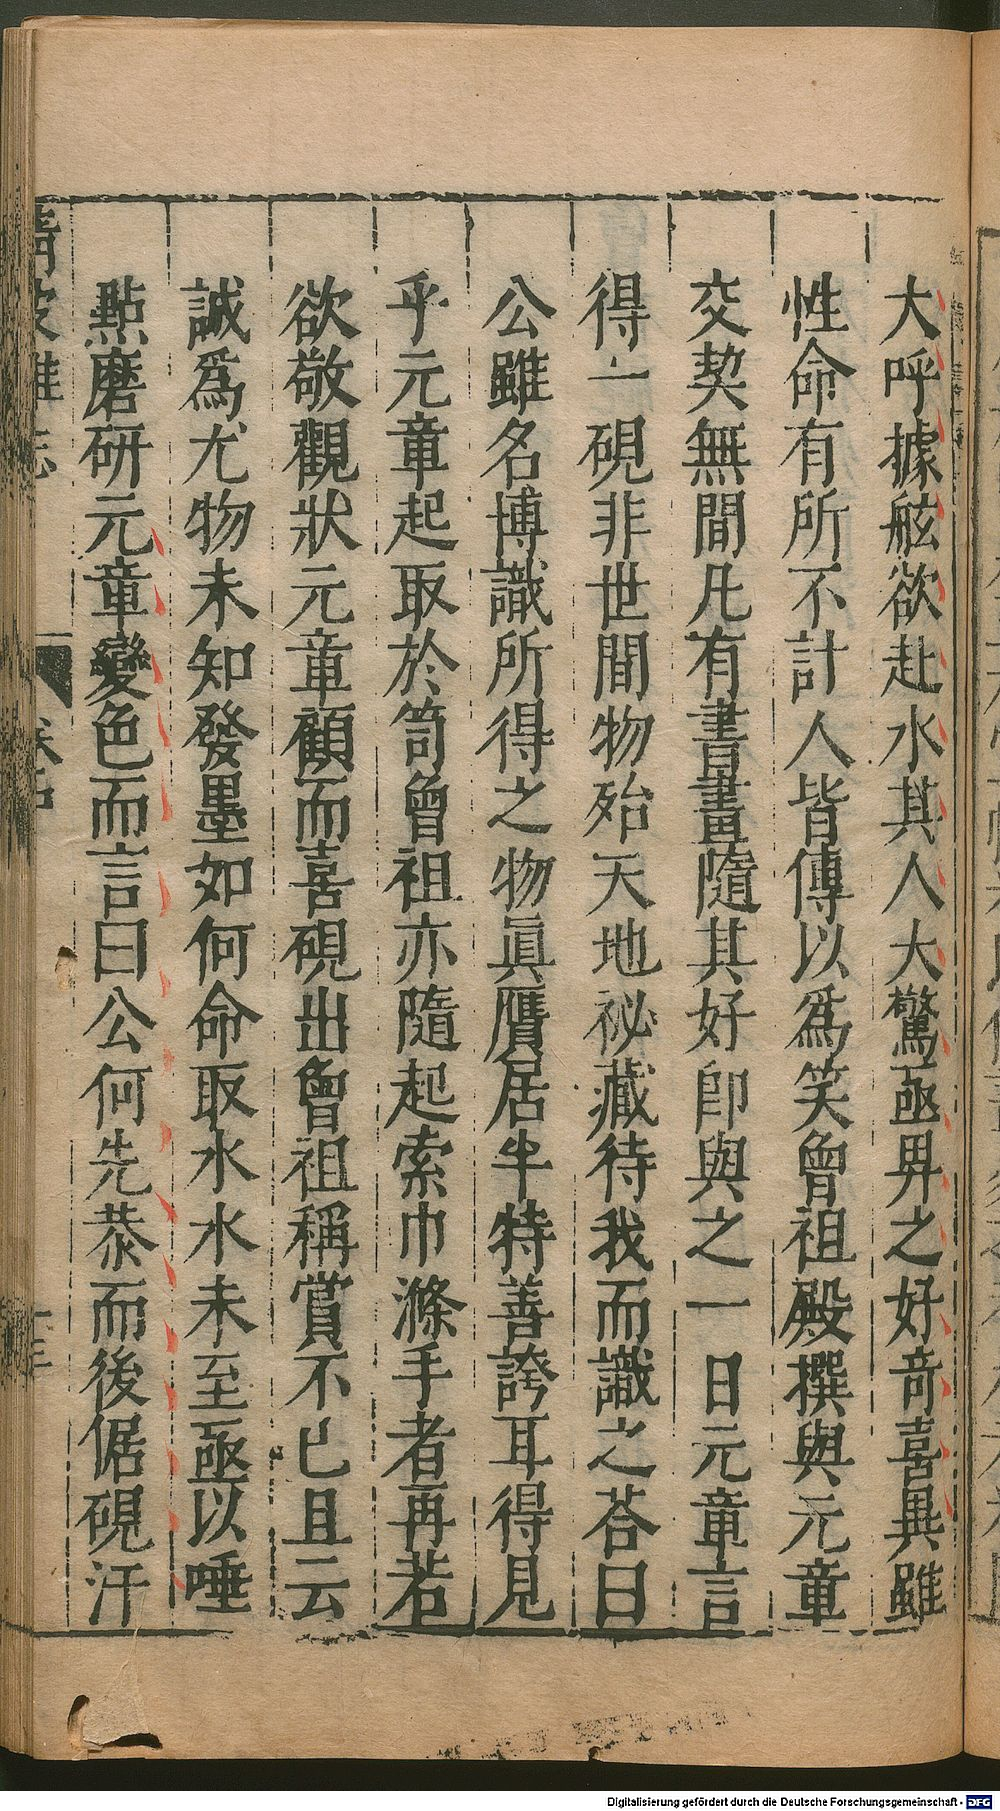 大呼據舷欲赴水其人大驚亟畀之好奇喜異雖
性命有所不計人皆傳以爲笑曾祖殿撰與元章
交契無間凡有書畫隨其好卽與之一日元章言
得一硯非世間物殆天地祕藏待我而識之荅曰
公雖名博識所得之物眞贗居半特善誇耳得見
乎元章起取於笥曾祖亦隨起索巾滌手者再若
欲敬觀狀元章顧而喜硯出曾祖稱賞不已且云
誠爲尤物未知發墨如何命取水水未至亟以唾
點磨研元章變色而言曰公何先恭而後倨硯汙
清波雜志
十三
Digitalisierung gefördert durch die Deutsche Forschungsgemeinschaft - DFG